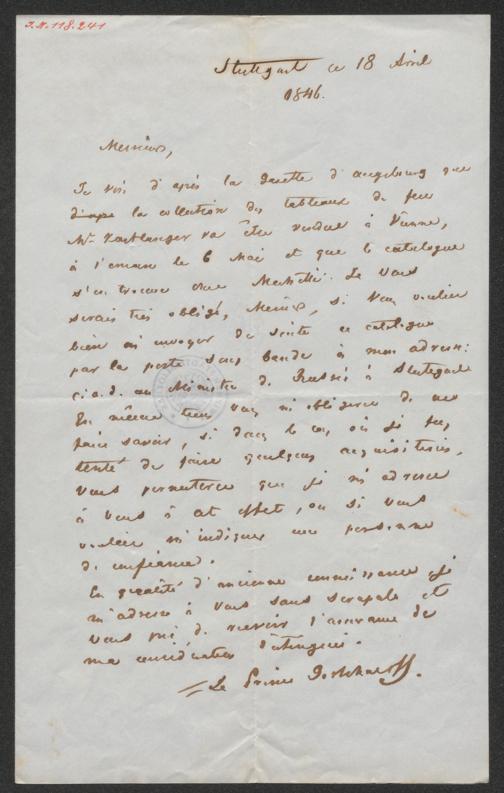 J.N. 118.241
Stuttgart ce 18 Avril
1846.
Messieurs,
Je vois d'après la Gazette d'Augsbourg que
la collection des tableaux de feu
Mr. va être vendue à Vienne,
à l'encan le 6 Mai et que le catalogue
s'en trouve chez Je vous
serais très obligé, Messieurs, si vous vouliez
bien m'envoyer de suite ce catalogue
par la poste sous bande à mon adresse:
c.a.d. au Ministre de Russie à Stuttgart
En même tems vous m'obligerez de me
faire savoir, si dans le cas où je fus
tenté de faire quelques acquisitions,
vous permetterez que je m'adresse
à vous à cet effet, ou si vous
voulez m'indiquer une personne
de confiance.
En qualité d'ancienne connaissance je
m'adresse à vous sans scrupule et
vous prie de recevoir l'assurance de
ma considération distinguée.
Le Prince Gortchacoff